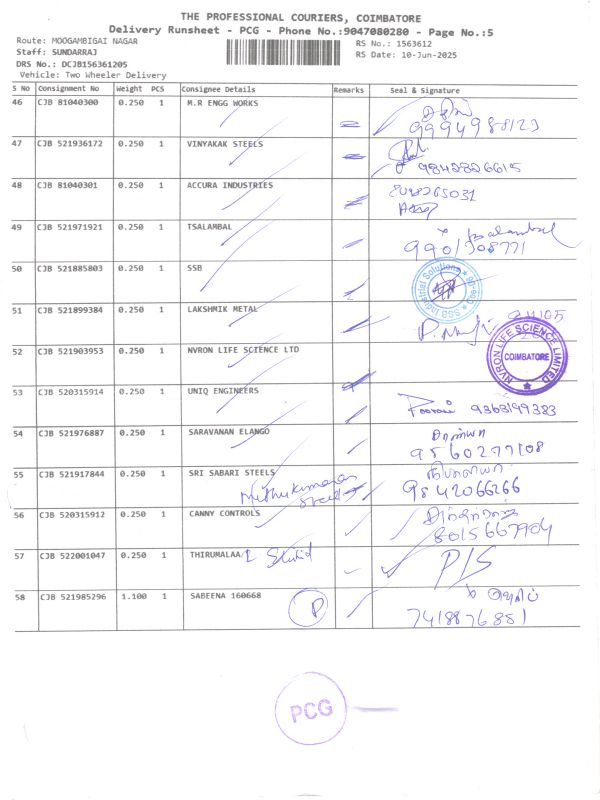 THE PROFESSIONAL COURIERS, COIMBATORE
Delivery Runsheet - PCG - Phone No.:9047080280 - Page No.:5
Route: MOOGAMBIGAI NAGAR RS No.: 1563612
Staff: SUNDARRAJ RS Date: 10-Jun-2025
DRS No.: DCJB156361205
Vehicle: Two Wheeler Delivery
S No Consignment No Weight PCS Consignee Details Remarks Seal & Signature
46 CJB 81040300 0.250 1 M.R ENGG WORKS
9994988123
47 CJB 521936172 0.250 1 VINYAKAK STEELS
9842826615
48 CJB 81040301 0.250 1 ACCURA INDUSTRIES
49 CJB 521971921 0.250 1 TSALAMBAL
9901308771
50 CJB 521885803 0.250 1 SSB
SSB Industrial Solutions
51 CJB 521899384 0.250 1 LAKSHMIK METAL
52 CJB 521903953 0.250 1 NVRON LIFE SCIENCE LTD
NVRON LIFE SCIENCE LIMITED
COIMBATORE
53 CJB 520315914 0.250 1 UNIQ ENGINEERS
9363199383
54 CJB 521976887 0.250 1 SARAVANAN ELANGO
9560277108
55 CJB 521917844 0.250 1 SRI SABARI STEELS
Muthukumaran
9842066266
56 CJB 520315912 0.250 1 CANNY CONTROLS
8015667904
57 CJB 522001047 0.250 1 THIRUMALAA
P/S
58 CJB 521985296 1.100 1 SABEENA 160668 P
7418876881
PCG